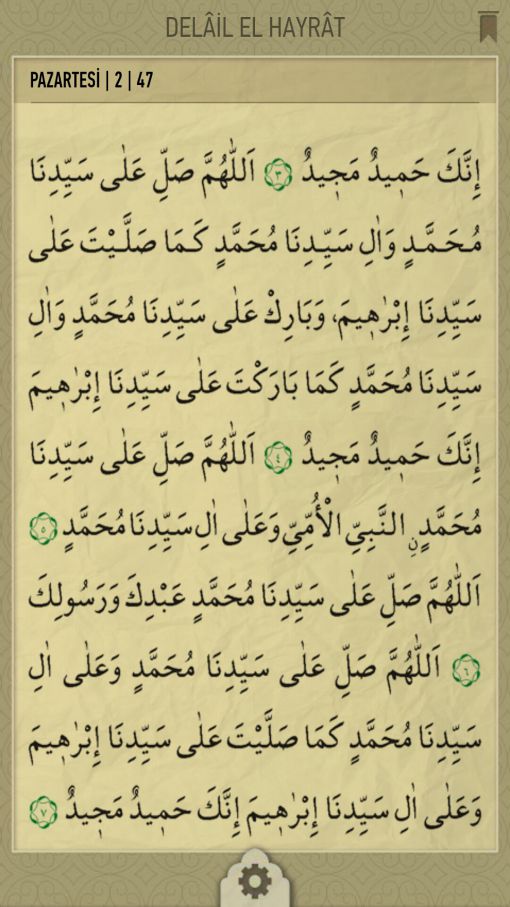 DELÂİL EL HAYRÂT
PAZARTESİ | 2 | 47
إِنَّكَ حَمٖيدٌ مَجٖيدٌ ﴿٣﴾ اَللّٰهُمَّ صَلِّ عَلٰى سَيِّدِنَا
مُحَمَّدٍ وَاٰلِ سَيِّدِنَا مُحَمَّدٍ كَمَا صَلَّيْتَ عَلٰى
سَيِّدِنَا إِبْرٰهٖيمَ، وَبَارِكْ عَلٰى سَيِّدِنَا مُحَمَّدٍ وَاٰلِ
سَيِّدِنَا مُحَمَّدٍ كَمَا بَارَكْتَ عَلٰى سَيِّدِنَا إِبْرٰهٖيمَ
إِنَّكَ حَمٖيدٌ مَجٖيدٌ ﴿٤﴾ اَللّٰهُمَّ صَلِّ عَلٰى سَيِّدِنَا
مُحَمَّدٍ نِ النَّبِيِّ الْأُمِّيِّ وَعَلٰى اٰلِ سَيِّدِنَا مُحَمَّدٍ ﴿٥﴾
اَللّٰهُمَّ صَلِّ عَلٰى سَيِّدِنَا مُحَمَّدٍ عَبْدِكَ وَرَسُولِكَ
﴿٦﴾ اَللّٰهُمَّ صَلِّ عَلٰى سَيِّدِنَا مُحَمَّدٍ وَعَلٰى اٰلِ
سَيِّدِنَا مُحَمَّدٍ كَمَا صَلَّيْتَ عَلٰى سَيِّدِنَا إِبْرٰهٖيمَ
وَعَلٰى اٰلِ سَيِّدِنَا إِبْرٰهٖيمَ إِنَّكَ حَمٖيدٌ مَجٖيدٌ ﴿٧﴾